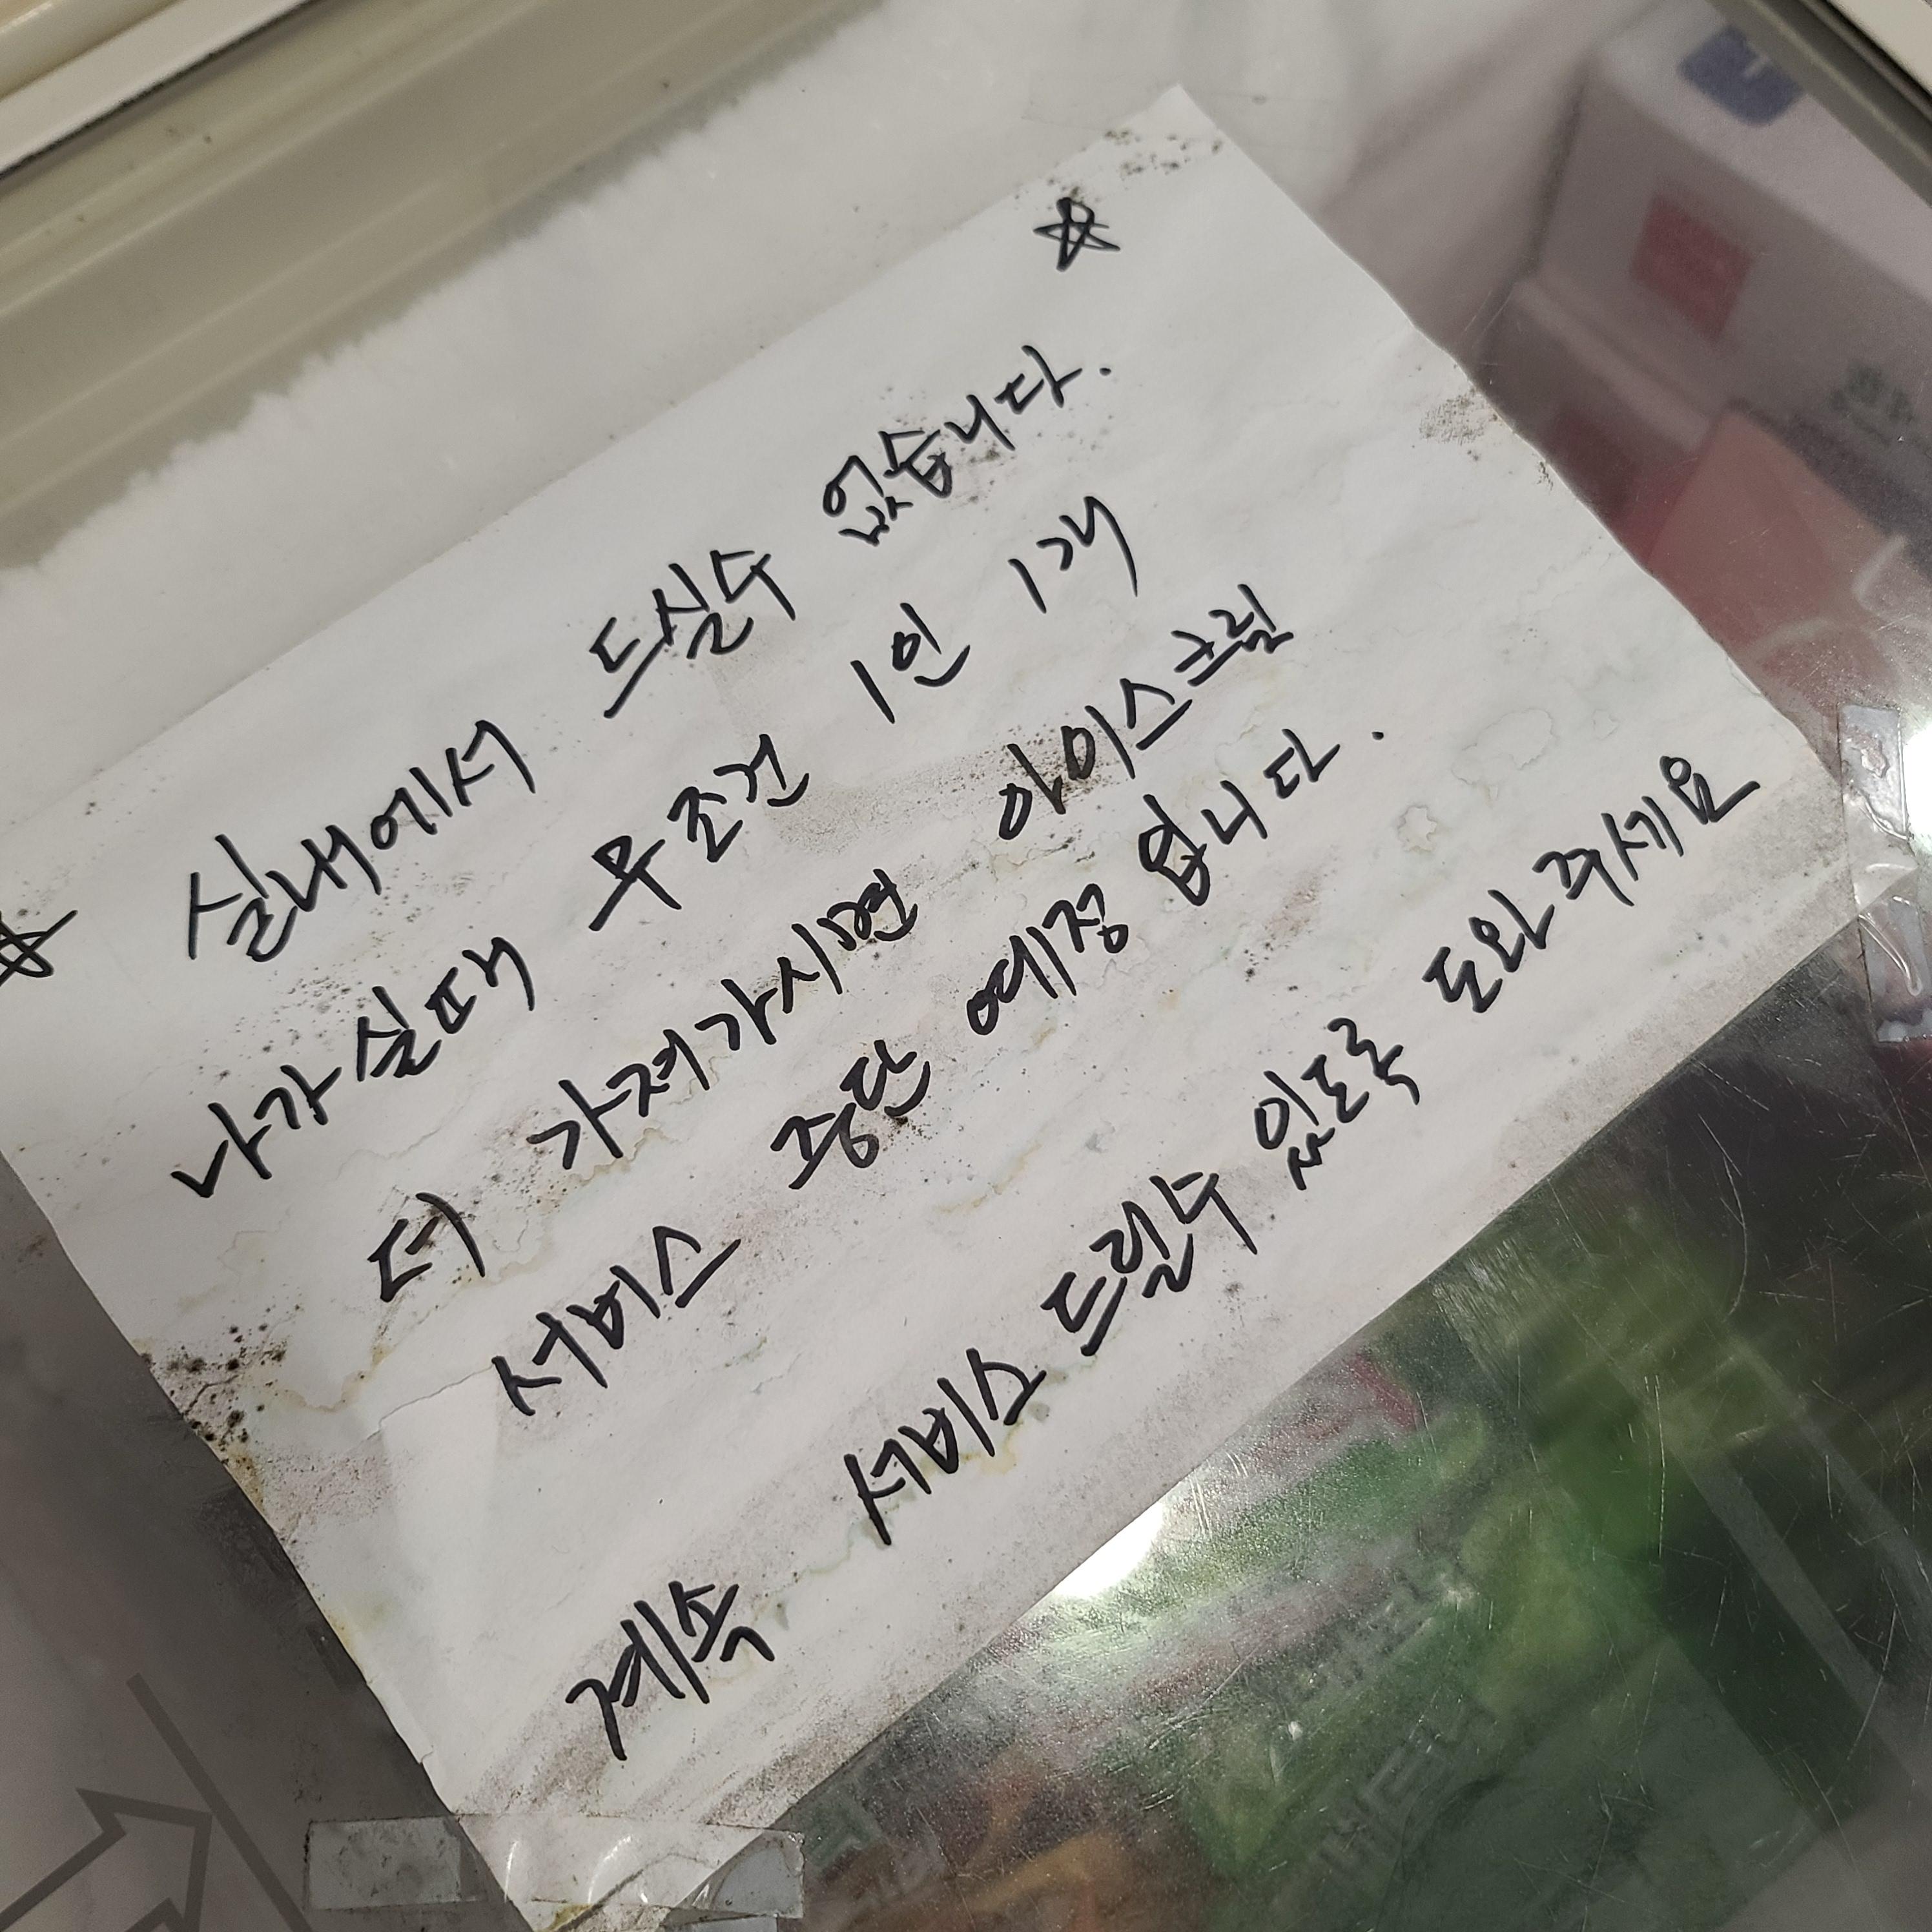 ☆ 실내에서 드실수 없습니다. ☆
나가실때 무조건 1인 1개
더 가져가시면 아이스크림
서비스 중단 예정 입니다.
계속 서비스 드릴수 있도록 도와주세요